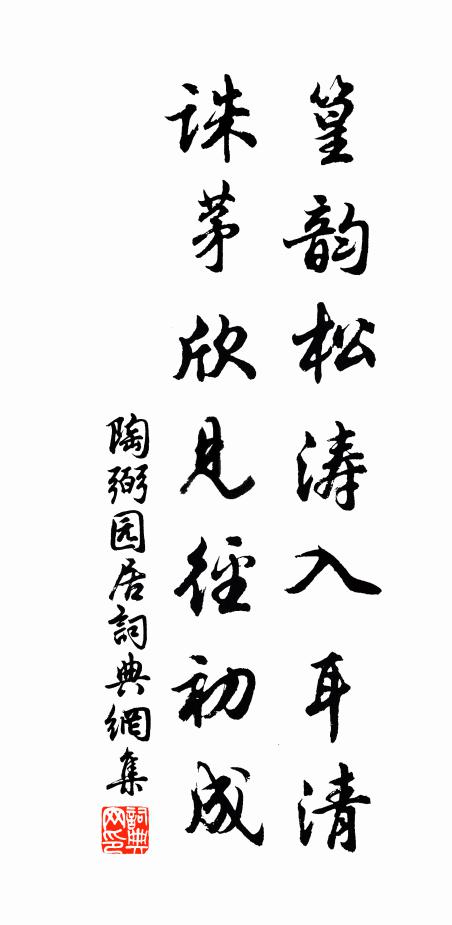 篁韵松涛入耳清
诛茅欣见径初成
陶弼园居詞典網集
詞典网印